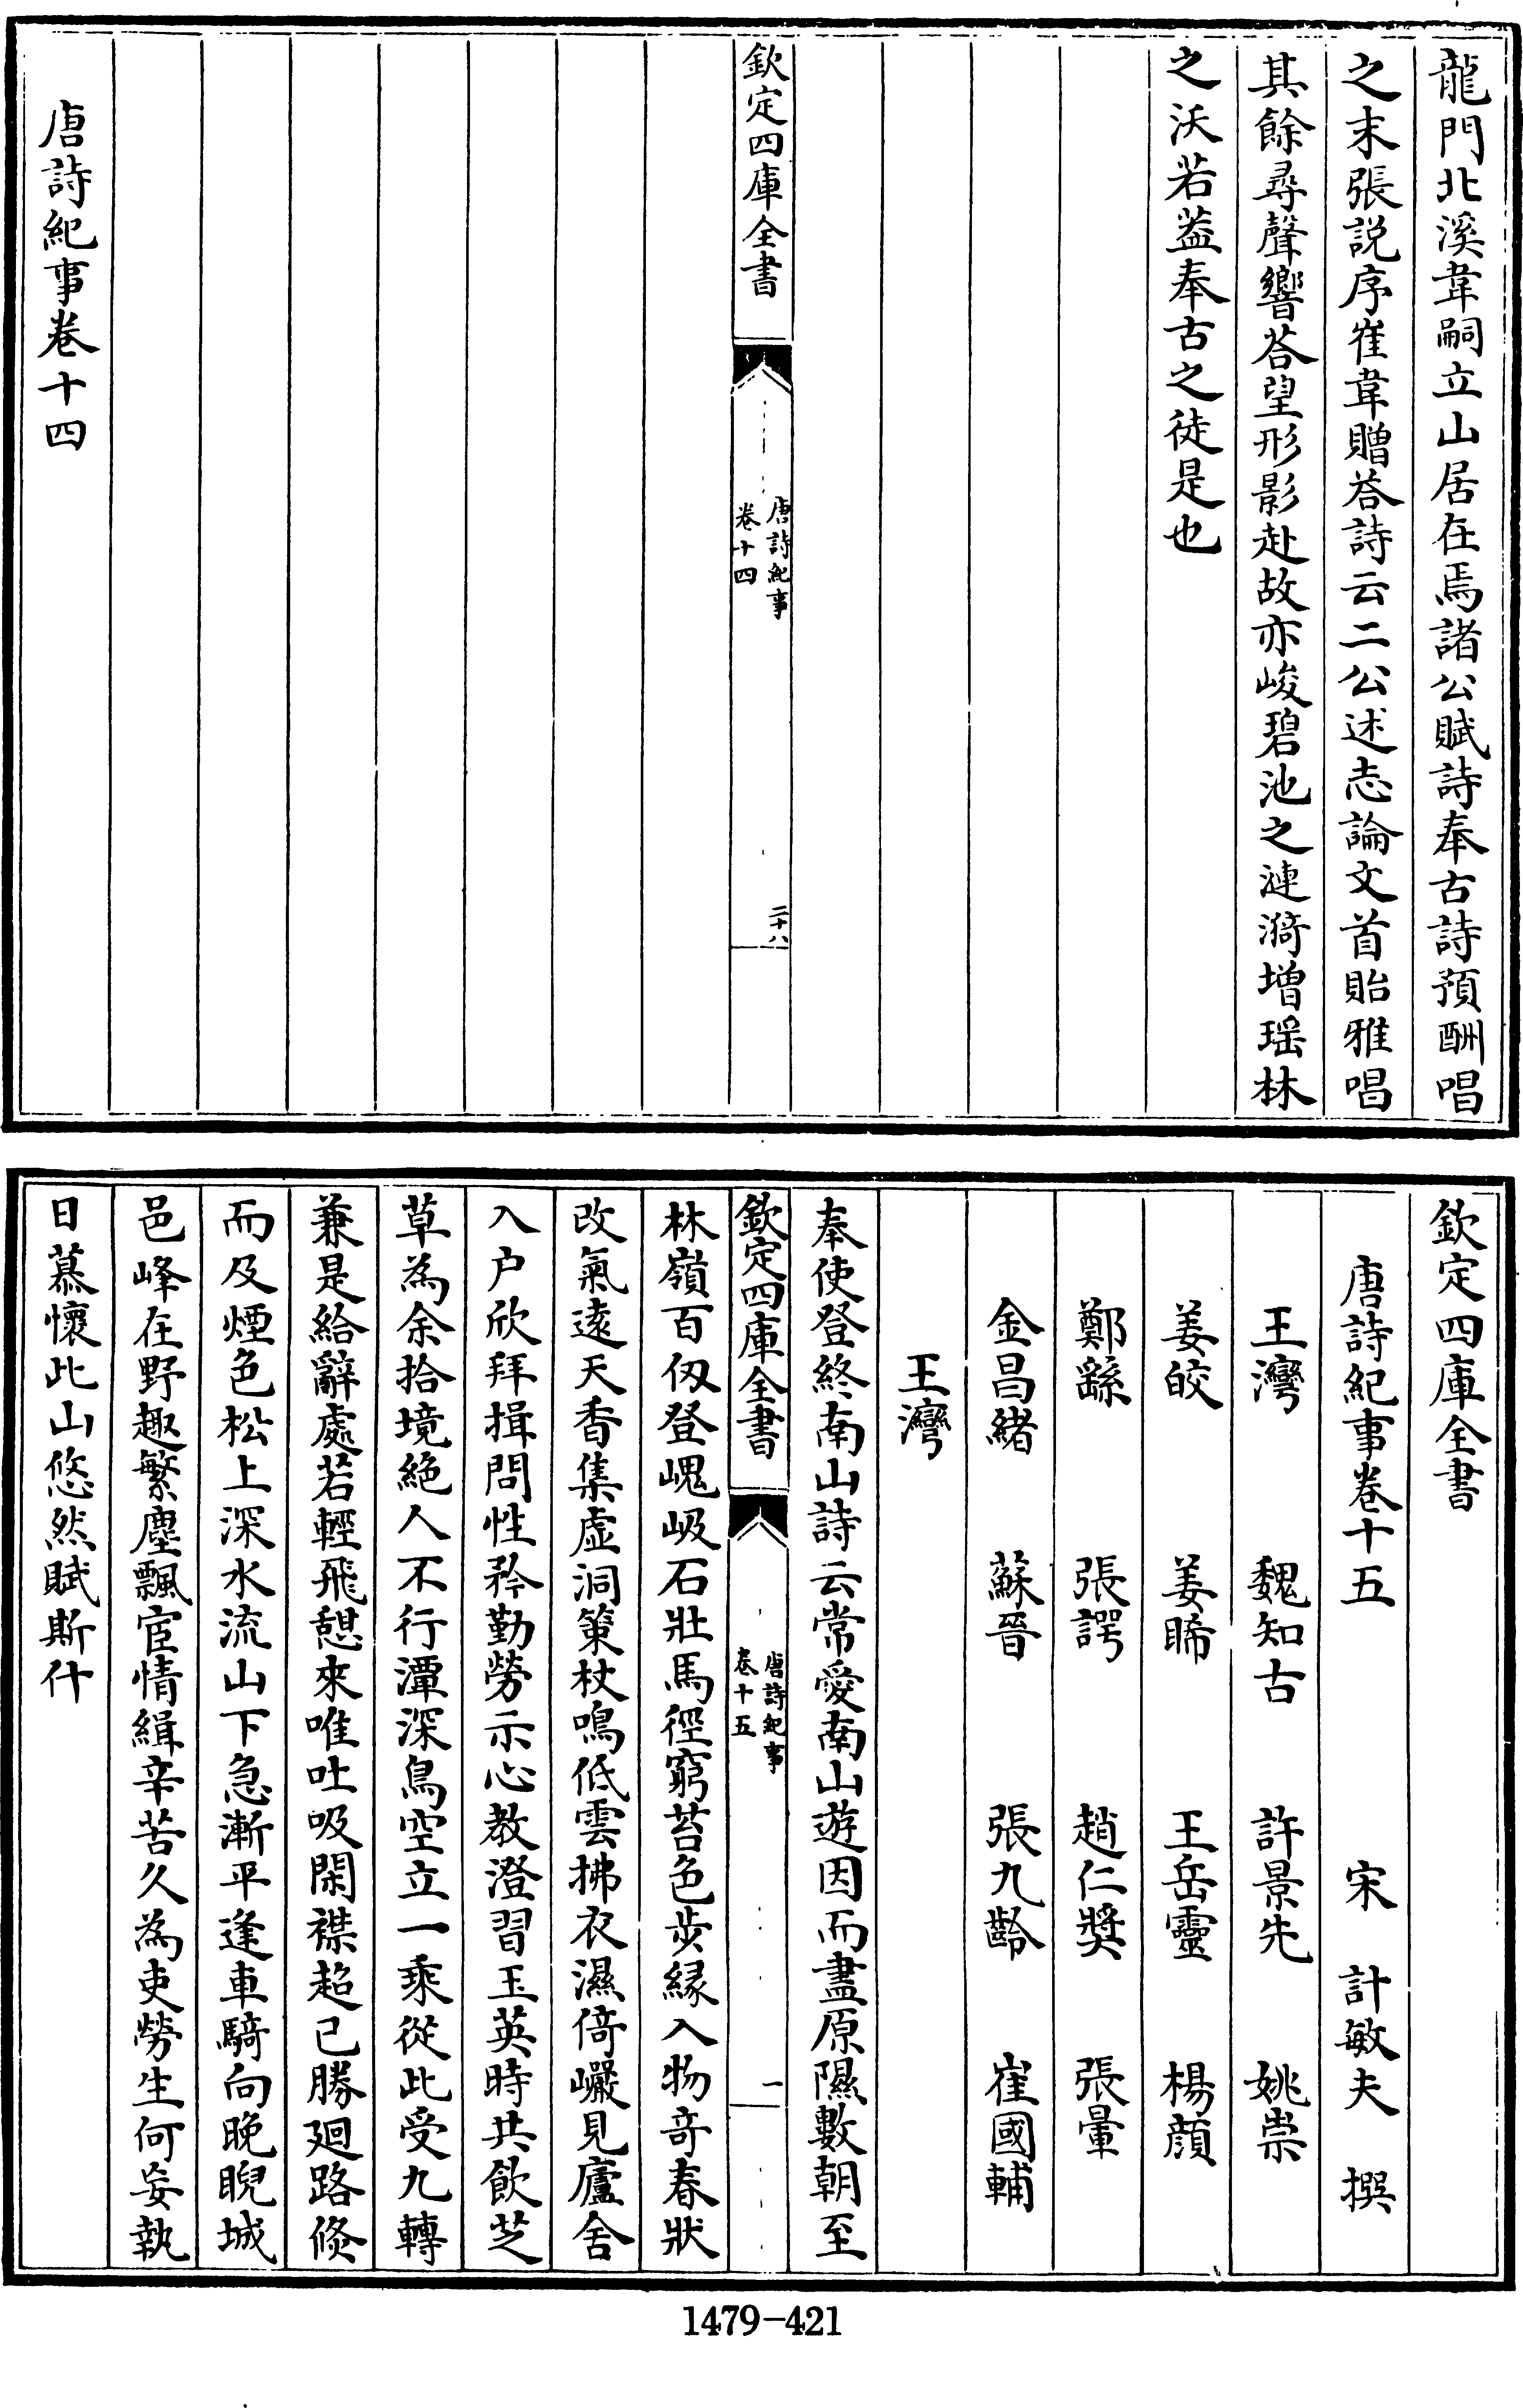 龍門北溪韋嗣立山居在焉諸公賦詩奉古詩預酬唱
之末張説序崔韋贈荅詩云二公述志論文首貽雅唱
其餘尋聲響荅望形影赴故亦峻碧池之漣漪增瑶林
之沃若葢奉古之徒是也
欽定四庫全書
唐詩紀事
卷十四
二十八
唐詩紀事卷十四
欽定四庫全書
唐詩紀事卷十五 宋 計敏夫 撰
王灣 魏知古 許景先 姚崇
姜皎 姜晞 王岳靈 楊顔
鄭繇 張諤 趙仁奬 張暈
金昌緒 蘇晉 張九齡 崔國輔
王灣
奉使登終南山詩云常愛南山遊因而盡原隰數朝至
欽定四庫全書
唐詩紀事
卷十五
一
林嶺百仭登嵬岌石壯馬徑窮苔色步緣入物竒春狀
改氣逺天香集虛洞策杖鳴低雲拂衣濕倚巘見廬舍
入户欣拜揖問性矜勤勞示心教澄習玉英時共飲芝
草為余拾境絶人不行潭深鳥空立一乘從此受九轉
兼是給辭處若輕飛憩來唯吐吸閑襟超已勝廻路倐
而及煙色松上深水流山下急漸平逢車騎向晚睨城
邑峰在野趣繁塵飄宦情緝辛苦久為吏勞生何妄執
日慕懷此山悠然賦斯什
1479-421